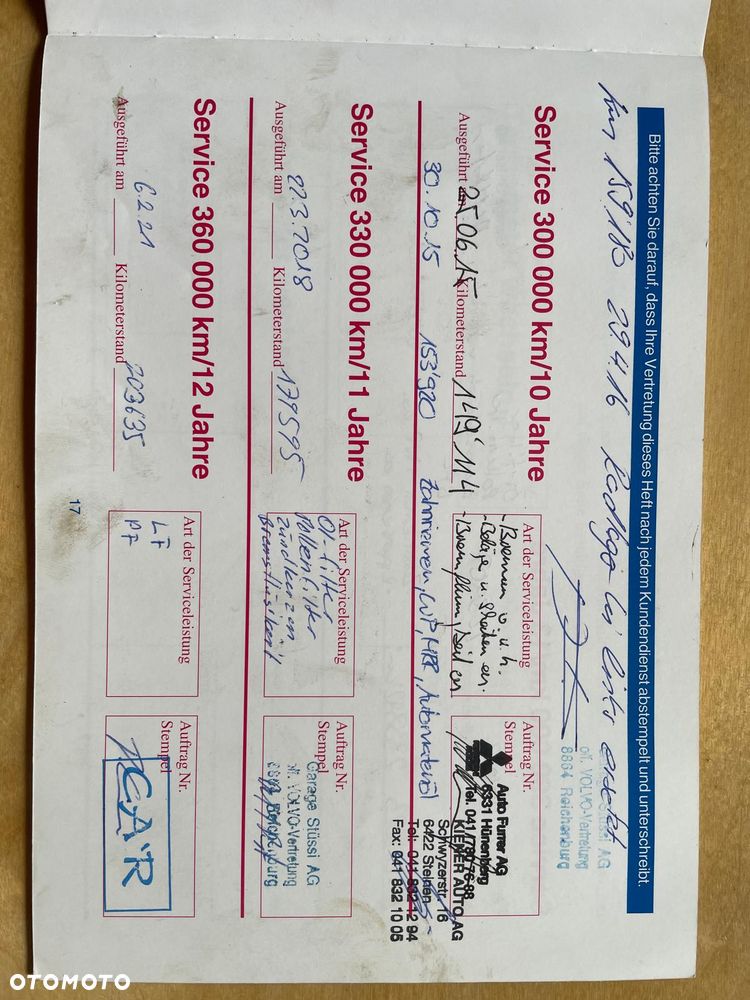 Bitte achten Sie darauf, dass Ihre Vertretung dieses Heft nach jedem Kundendienst abstempelt und unterschreibt.
km 159'183 29.4.16 links ersetzt
Garage Stüssi AG
off. VOLVO-Vertretung
8864 Reichenburg
Service 300 000 km/10 Jahre
Ausgeführt am 25.06.15 Kilometerstand 149'114
30.10.15 153'920 Zahnriemen, WP, Automatenöl
Art der Serviceleistung
- Bremsen v. u. h.
- Beläge u. Scheiben er.
Auftrag Nr.
Stempel
Auto Furrer AG
6331 Hünenberg
Tel. 041/780 76 88
KIENER AUTO AG
Schwyzerstr. 16
6422 Steinen
Tel: 041 832 12 94
Fax: 041 832 10 05
Service 330 000 km/11 Jahre
Ausgeführt am 22.3.2018 Kilometerstand 179595
Art der Serviceleistung
Öl-filter
Pollenfilter
Zündkerzen
Bremsflüssigkeit
Auftrag Nr.
Stempel
Garage Stüssi AG
off. VOLVO-Vertretung
8864 Reichenburg
Service 360 000 km/12 Jahre
Ausgeführt am 6.2.21 Kilometerstand 203635
Art der Serviceleistung
LF
PF
Auftrag Nr.
Stempel
CAR
17
OTOMOTO